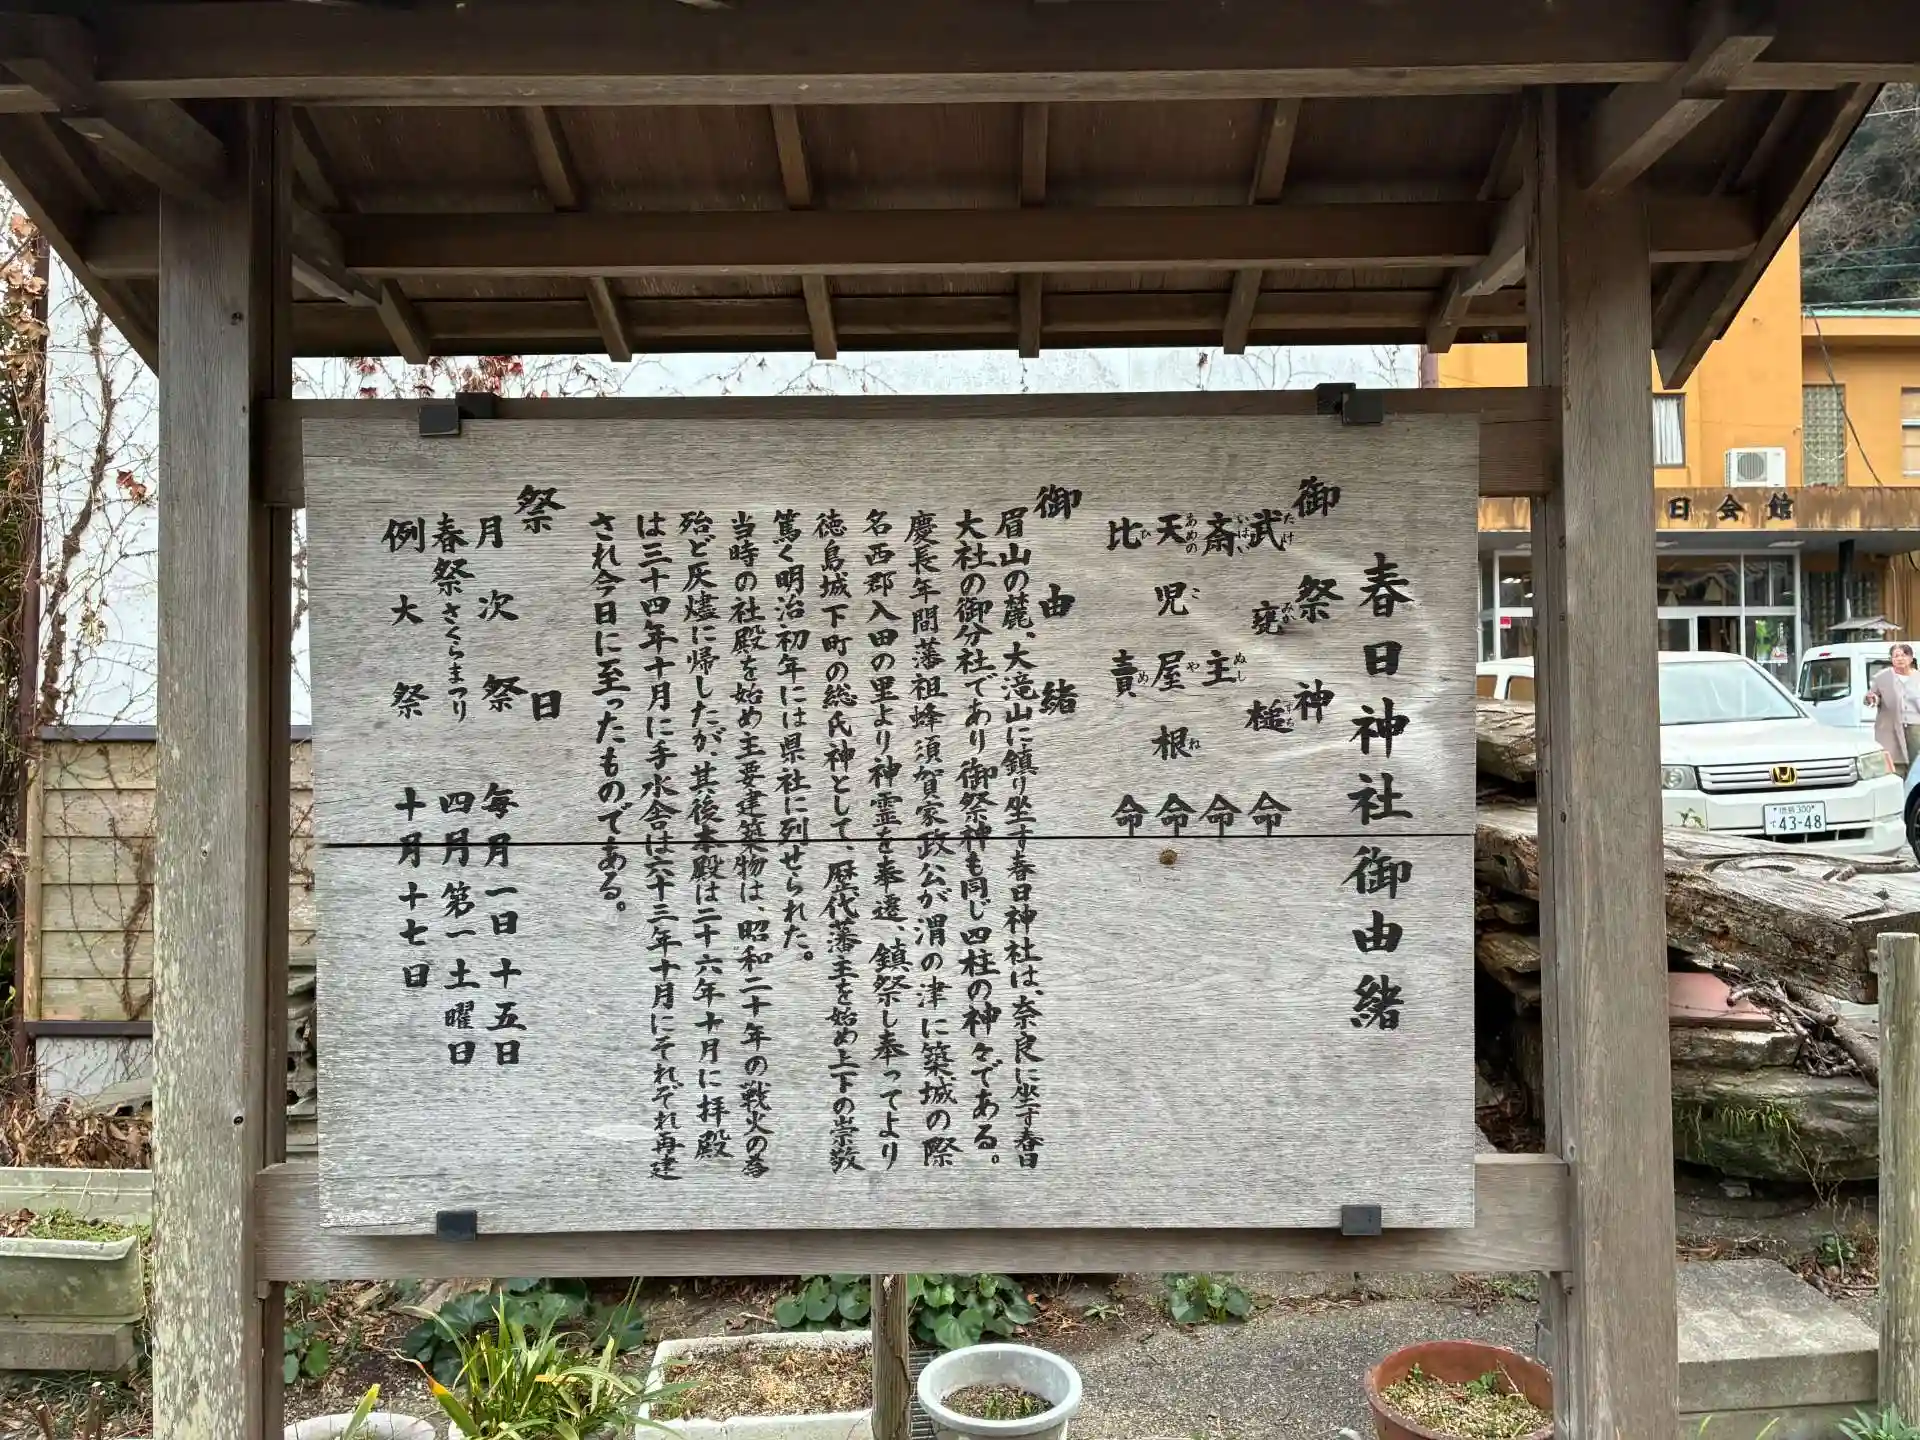 春日神社御由緒
御祭神
武甕槌命
たけみかづち
斎主命
いはいぬし
天児屋根命
あめのこやね
比売命
ひめ
御由緒
眉山の麓、大滝山に鎮り坐す春日神社は、奈良に坐す春日
大社の御分社であり御祭神も同じ四柱の神々である。
慶長年間藩祖蜂須賀家政公が渭の津に築城の際
名西郡入田の里より神霊を奉遷、鎮祭し奉ってより
徳島城下町の総氏神として、歴代藩主を始め上下の崇敬
篤く明治初年には県社に列せられた。
当時の社殿を始め主要建築物は、昭和二十年の戦火の為
殆ど灰燼に帰したが、其後本殿は二十六年十月に拝殿
は三十四年十月に手水舎は六十三年十月にそれぞれ再建
され今日に至ったものである。
祭日
月次祭 毎月一日十五日
春祭さくらまつり 四月第一土曜日
例大祭 十月十七日
日会館
徳島 300
て 43-48